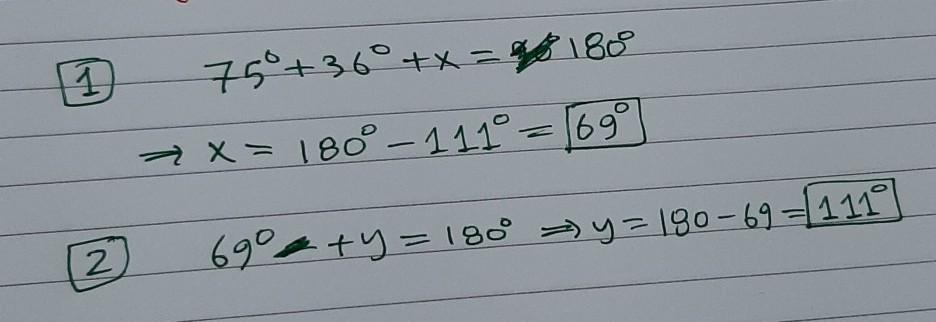 1 75° + 36° + x = 180°
⇒ x = 180° - 111° = 69°
2 69° + y = 180° ⇒ y = 180 - 69 = 111°